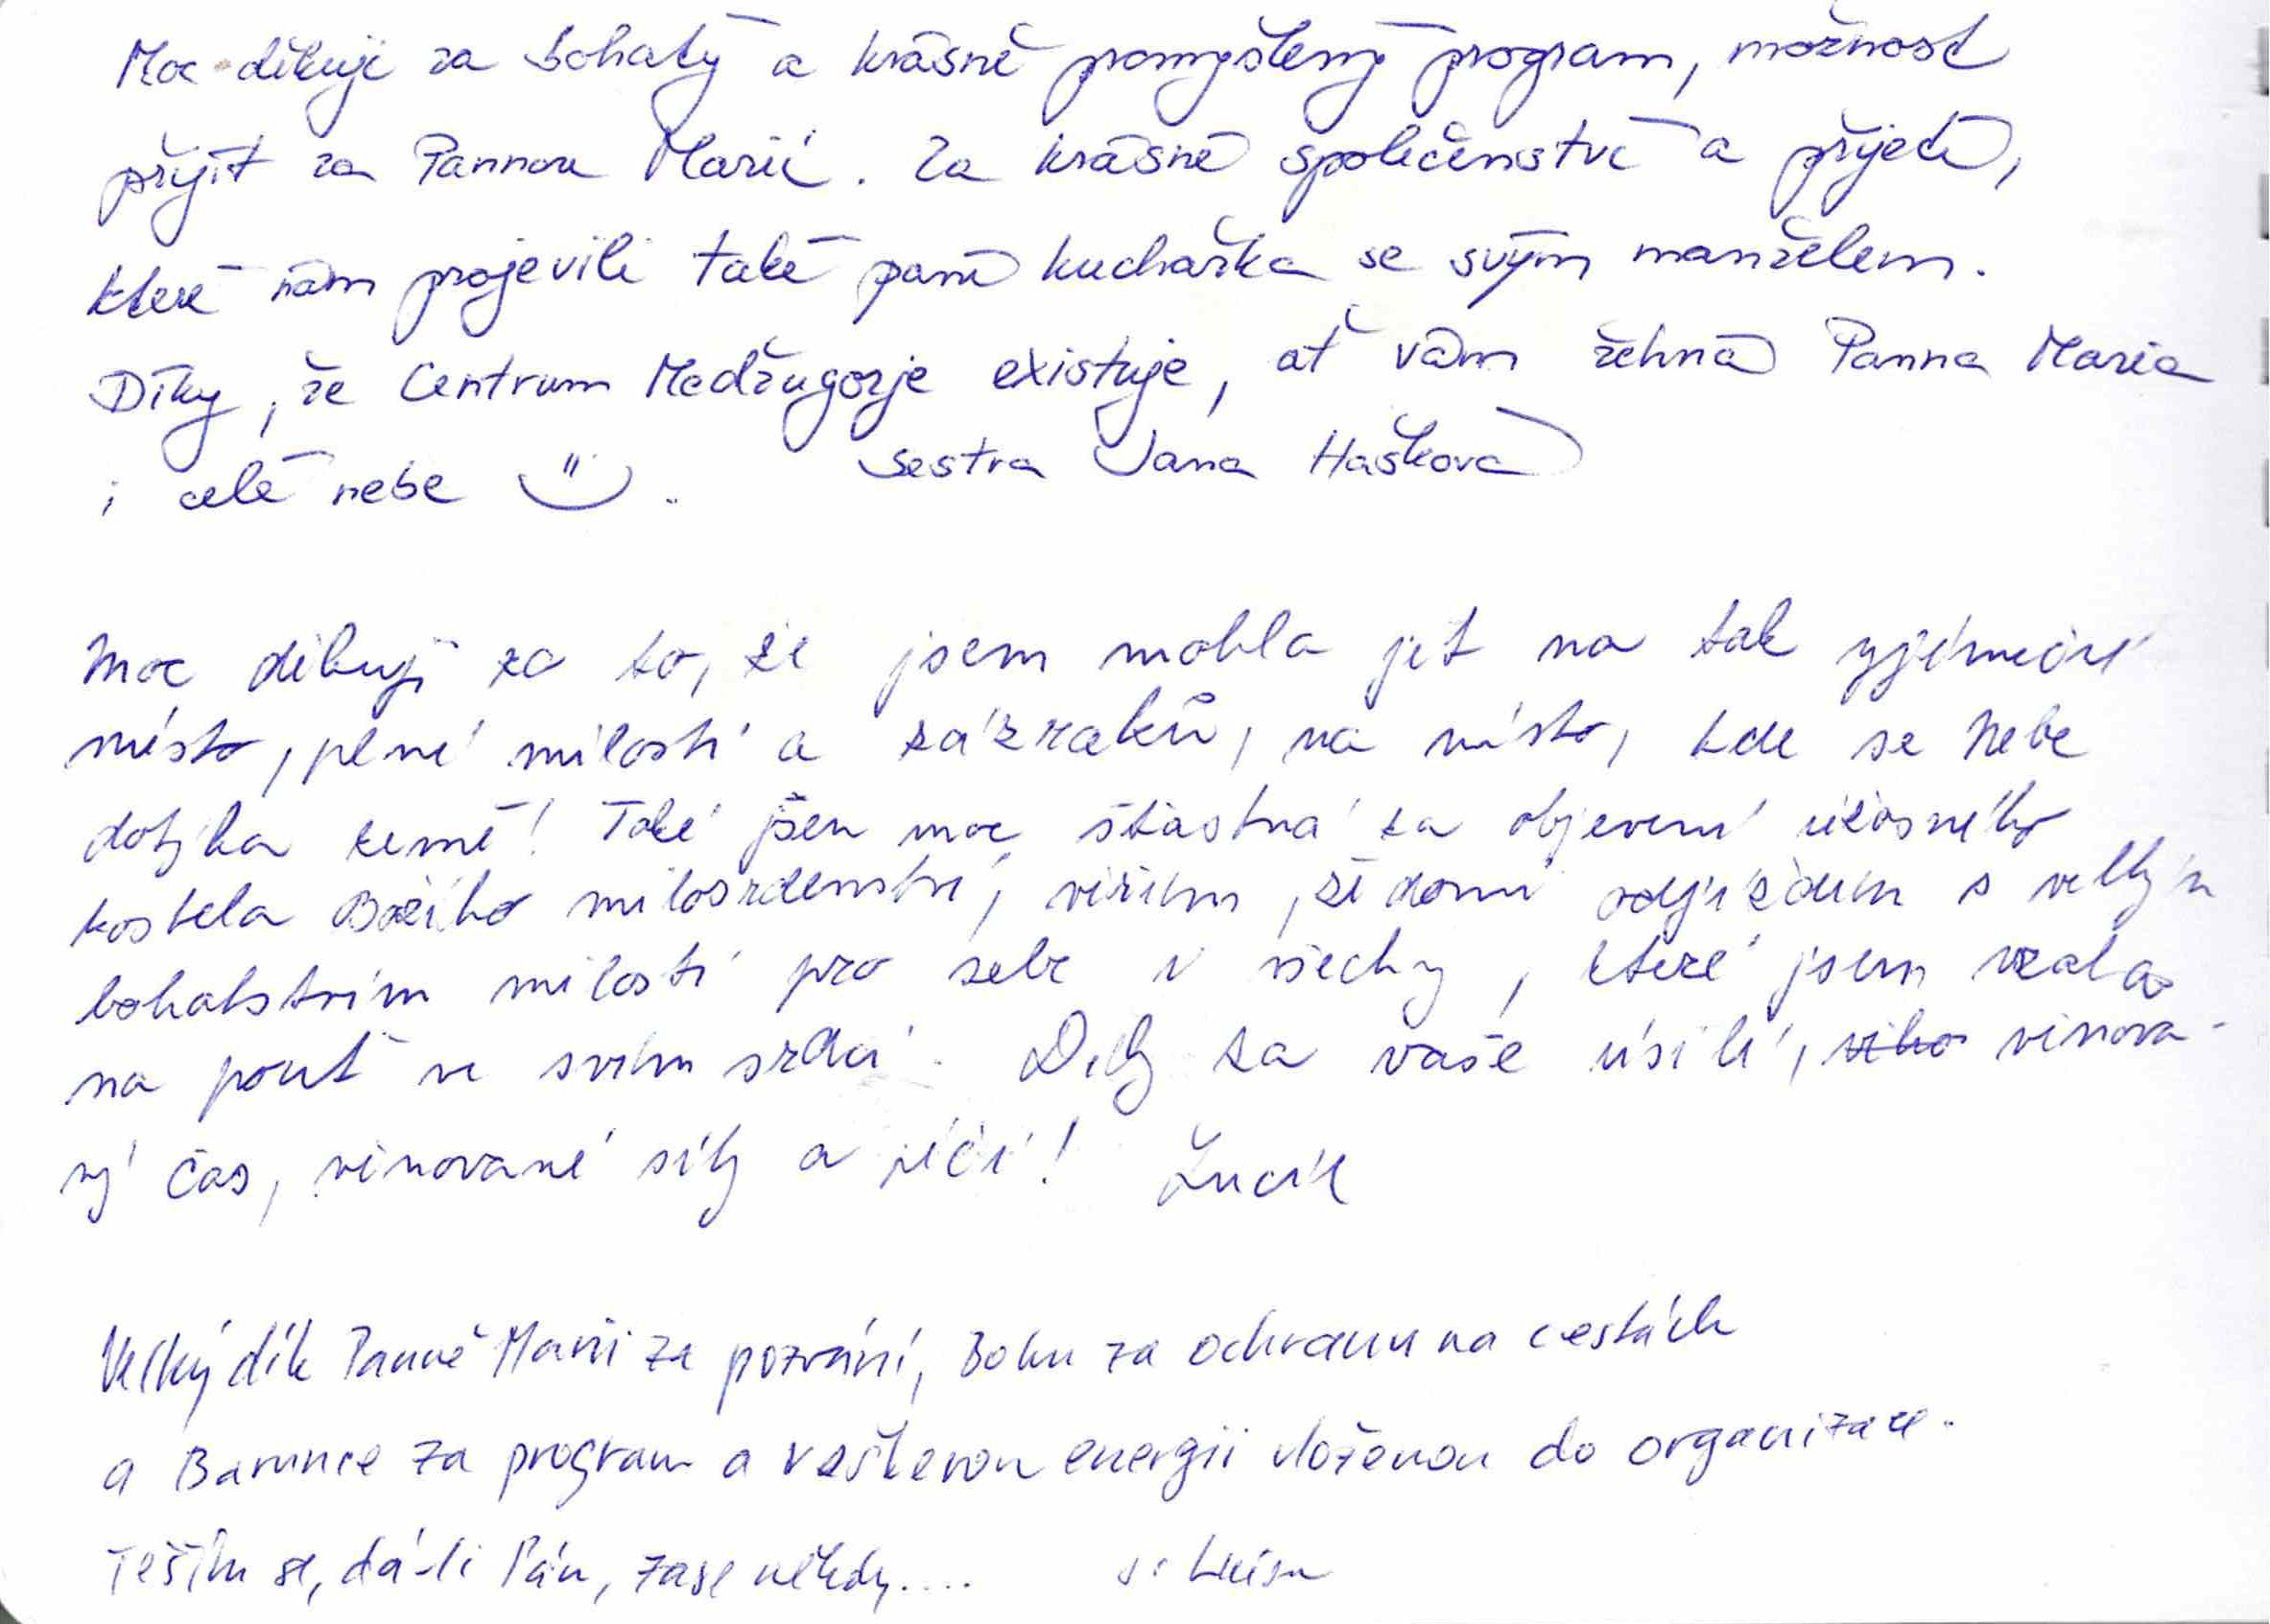 Moc děkuji za bohatý a krásně promyšlený program, možnost
přijít za Pannou Marií. Za krásné společenství a přijetí,
které nám projevili také paní kuchařka se svým manželem.
Díky, že Centrum Medžugorje existuje, ať vám žehná Panna Maria
i celé nebe. sestra Jana Hašková
Moc děkuji za to, že jsem mohla jet na tak výjimečné
místo, plné milostí a zázraků, na místo, kde se Nebe
dotýká země! Také jsem moc šťastná za objevení úžasného
kostela Božího milosrdenství, věřím, že domů odjíždím s velkým
bohatstvím milostí pro sebe i všechny, které jsem vzala
na pouť ve svém srdci. Díky za vaše úsilí, věnova-
ný čas, věnované síly a péči! Lucie
Velký dík Panně Marii za pozvání, Bohu za ochranu na cestách
a Barunce za program a veškerou energii vloženou do organizace.
Těším se, dá-li Pán, zase někdy....